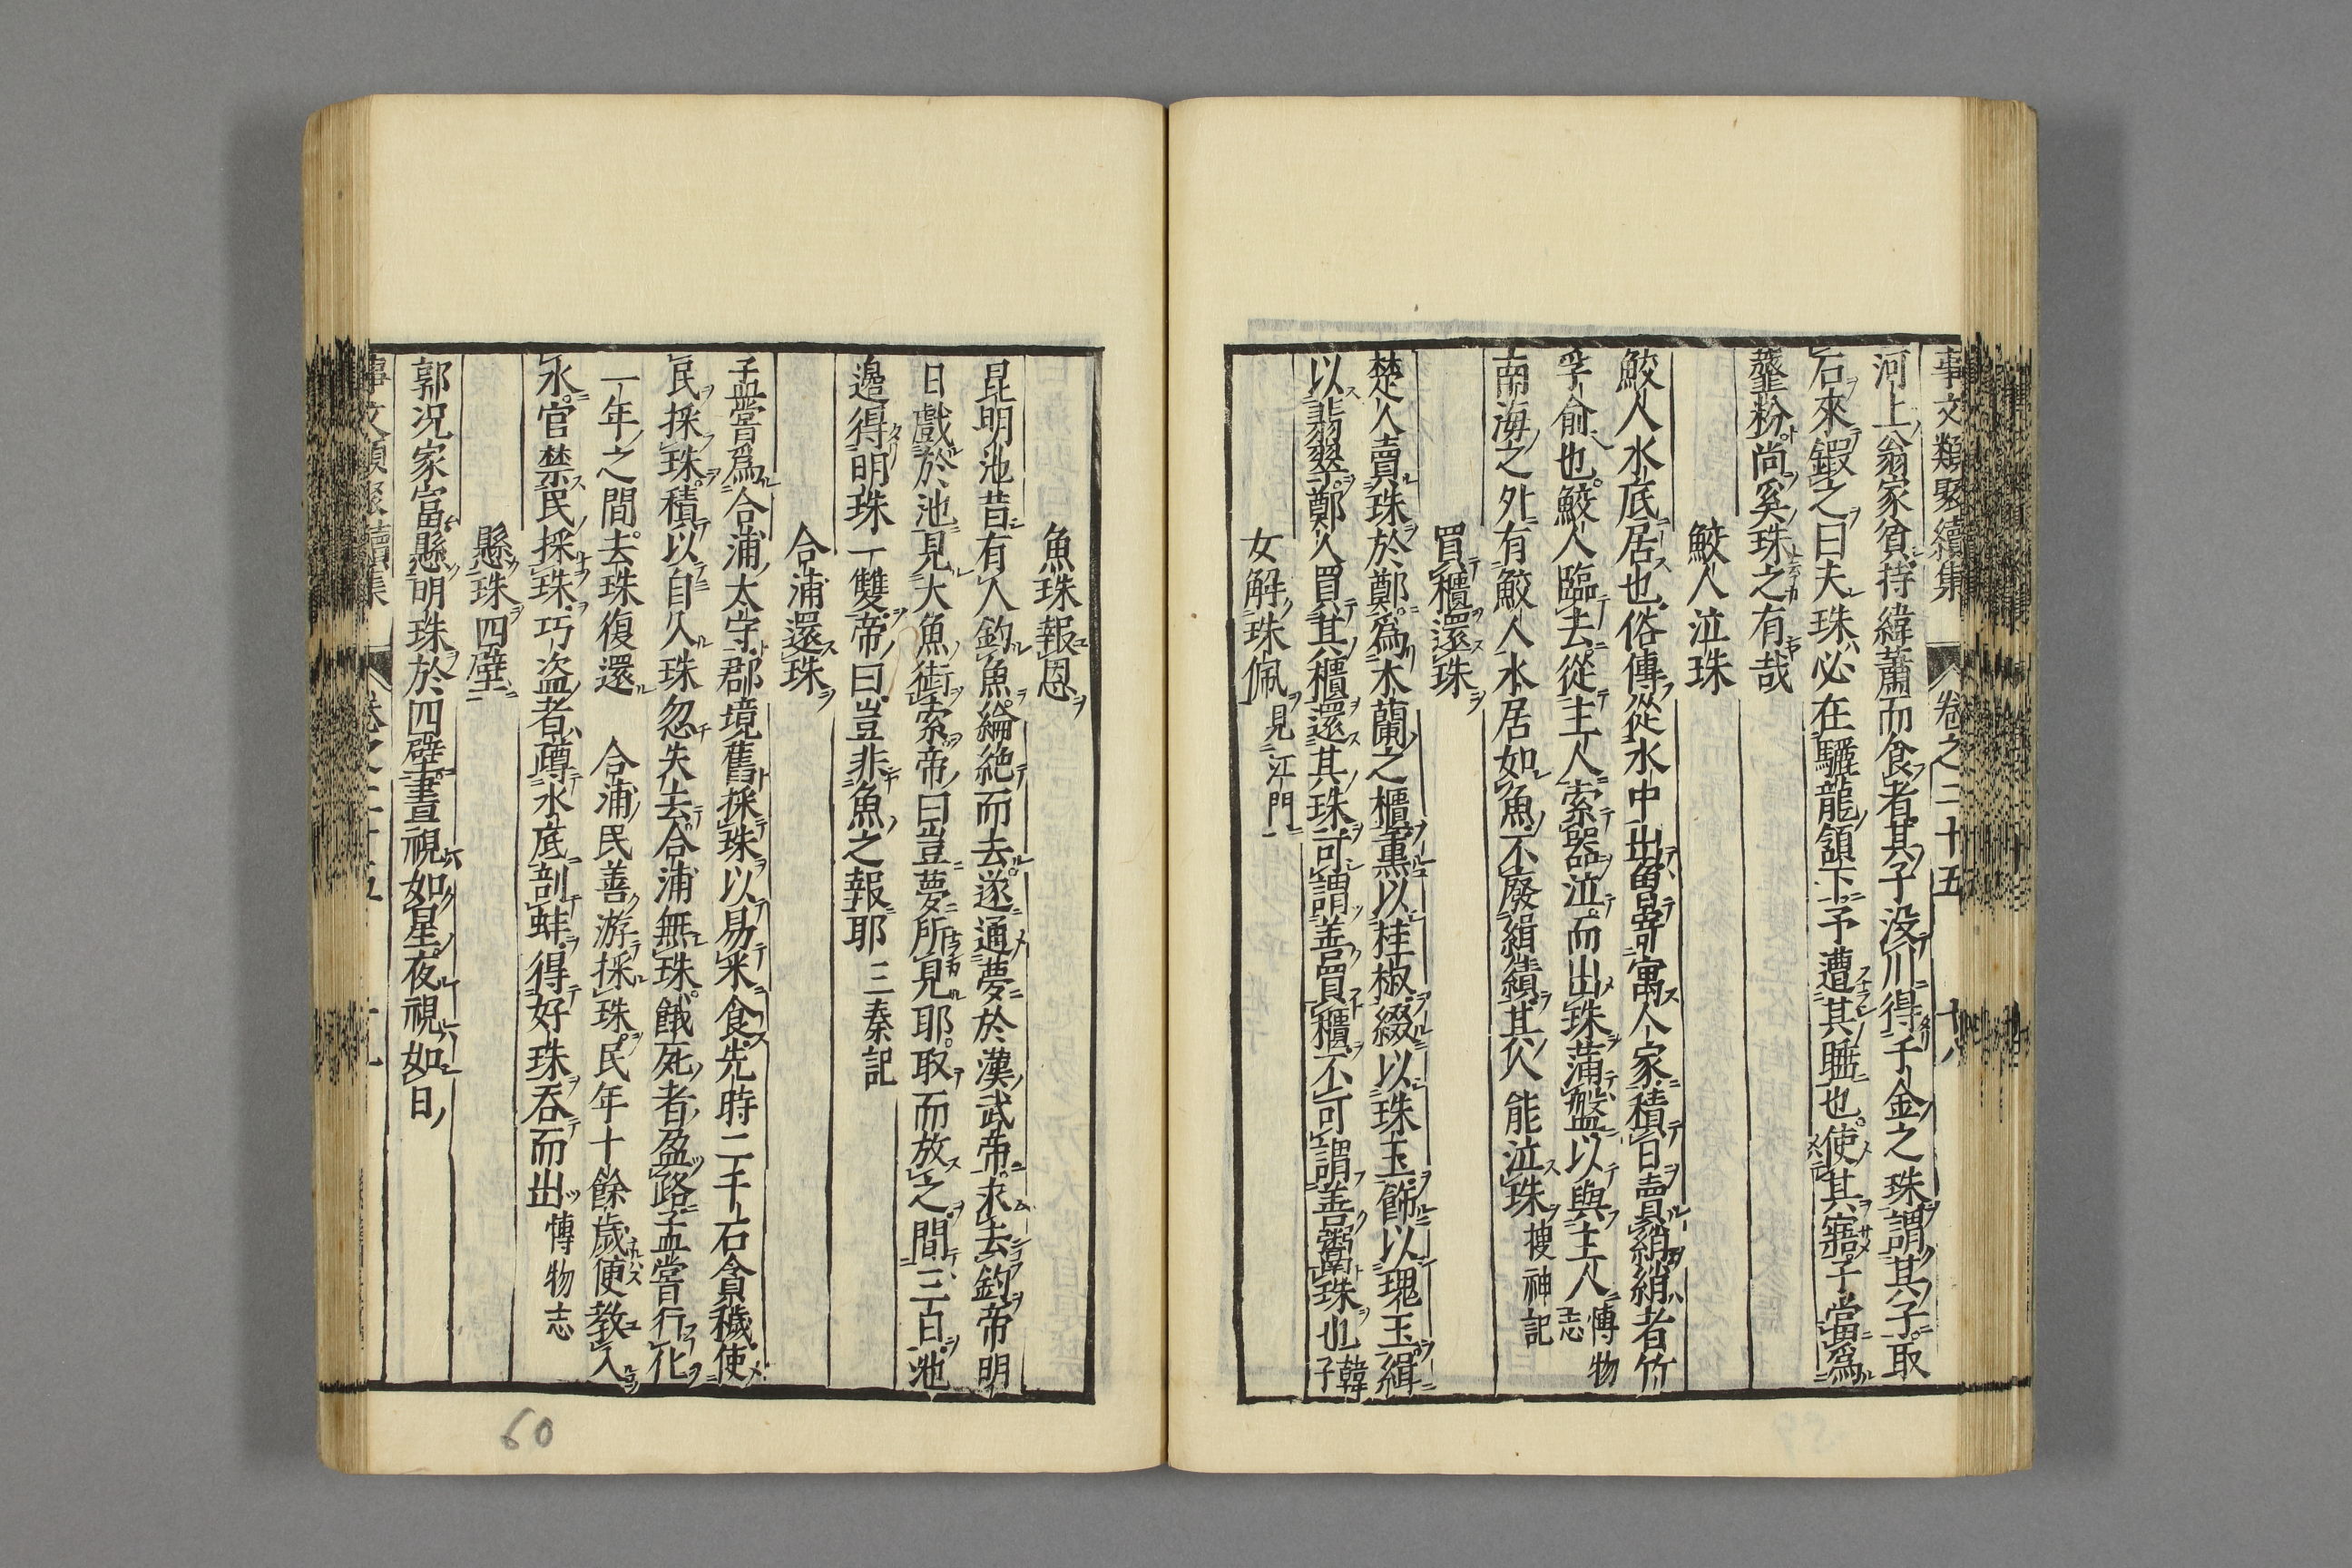 事文類聚續集 卷之二十五 十八
河上翁家貧持緯蕭而食者其子没川得千金之珠謂其子取
石來鍜之曰夫珠必在驪龍頷下予遭其睡也使其寤子當爲
虀粉尚奚珠之有哉
鮫人泣珠
鮫人水底居也俗傳從水中出曽寄寓人家積日賣綃綃者竹
孚俞也鮫人臨去從主人索器泣而出珠滿盤以與主人博物志
南海之外有鮫人水居如魚不廢緝績其人能泣珠搜神記
買櫃還珠
楚人賣珠於鄭爲木蘭之櫃薫以桂椒綴以珠玉飾以瑰玉緝
以翡翠鄭人買其櫃還其珠可謂善買櫃不可謂善鬻珠也韓子
女解珠佩見江門
魚珠報恩
昆明池昔有人釣魚綸絶而去遂通夢於漢武帝求去釣帝明
日戲於池見大魚銜索帝曰豈夢所見耶取而放之間三日池
邉得明珠一雙帝曰豈非魚之報耶三秦記
合浦還珠
孟嘗爲合浦太守郡境舊採珠以易米食先時二千石貪穢使
民採珠積以自入珠忽失去合浦無珠餓死者盈路孟嘗行化
一年之間去珠復還 合浦民善游採珠民年十餘歲便教入
水官禁民採珠巧盗者蹲水底剖蚌得好珠吞而出博物志
懸珠四壁
郭况家富懸明珠於四壁晝視如星夜視如日
事文類聚續集 卷之二十五 十九
60